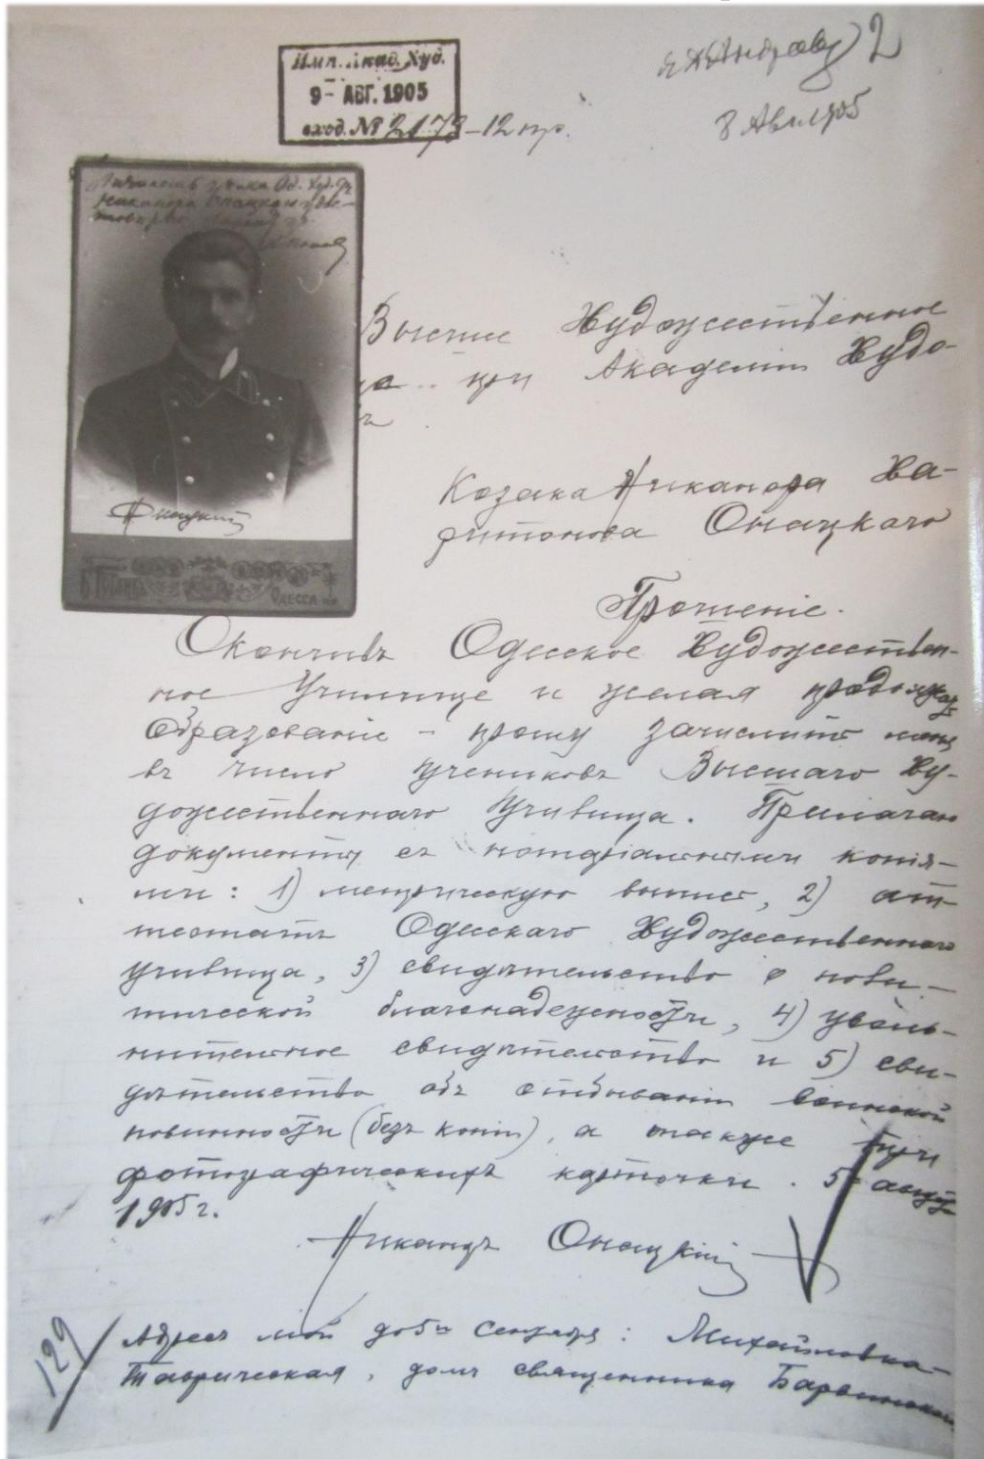 Имп. Акад. Худ.
9 - АВГ. 1905
вход. № 2173-12 пр.
2
8 Авг. 1905
Личность ученика Од. Худ. Уч.
Никанора Онацкаго удос-
Высшее Художественное
при Академіи Худо-
Козака Никанора Ха-
ритонова Онацкаго
Онацкій
Одесса
Прошеніе.
Окончивъ Одесское Художествен-
ное Училище и желая продолжать
образованіе – прошу зачислить меня
въ число учениковъ Высшаго Ху-
дожественнаго Училища. Прилагаю
документы съ нотаріальными копія-
ми: 1) метрическую выпись, 2) ат-
тестатъ Одесскаго Художественнаго
училища, 3) свидѣтельство о поли-
тической благонадежности, 4) уволь-
нительное свидѣтельство и 5) сви-
дѣтельство объ отбываніи воинской
повинности (безъ копіи), а также три
фотографическихъ карточки. 5 август
1905 г.
Никаноръ Онацкій
129
Адресъ мой до 5го Сентября: Михайловка-
Таврическая, домъ священника Барвинскаго